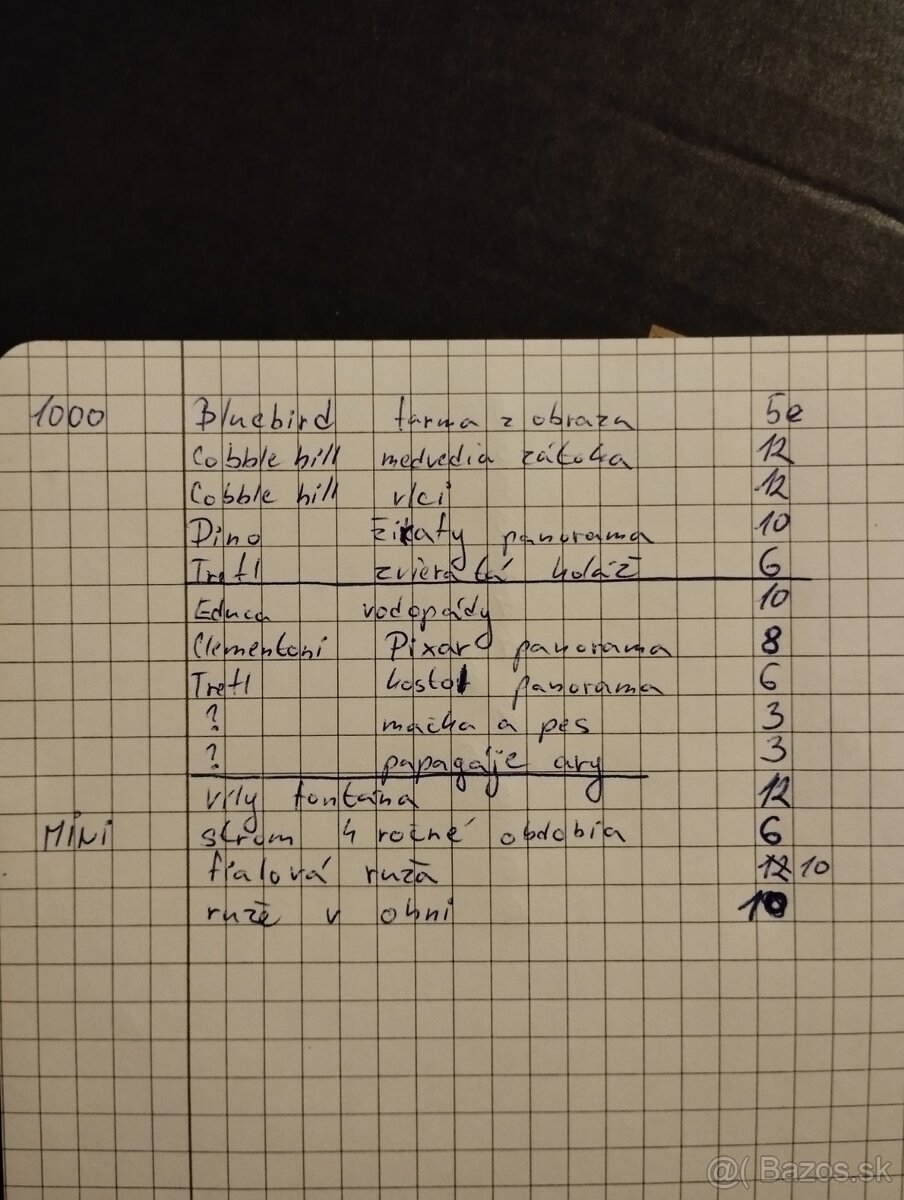 1000 Bluebird farma z obrazu 5e
Cobble hill medvedia zátoka 12
Cobble hill vlci 12
Dino 10 panorama
Trefl zvieratá koláž 6
Educa vodopády 10
Clementoni Pixar panorama 8
Trefl kostol panorama 6
? mačka a pes 3
? papagáje ary 3
víly fontána 12
MINI strom 4 ročné obdobia 6
fialová ruža 12 10
ruže v ohni 10
@( Bazos.sk